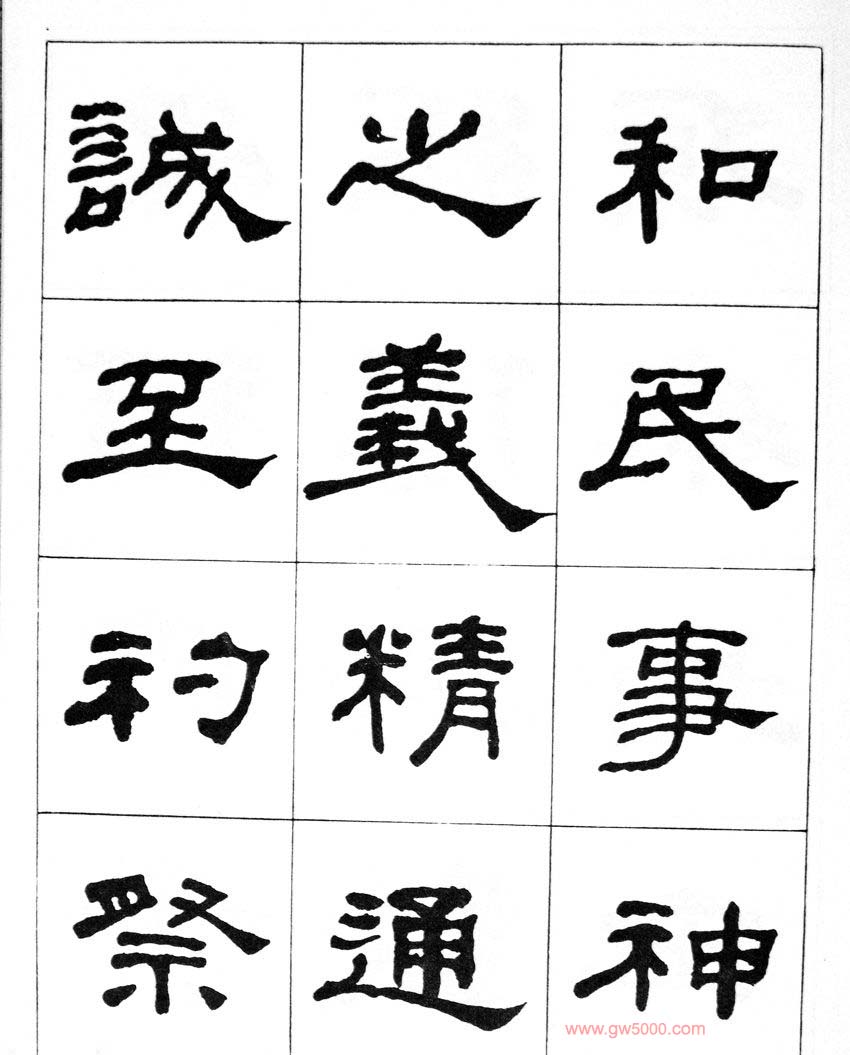 和民事神
之義精通
誠至礿祭
www.gw5000.com